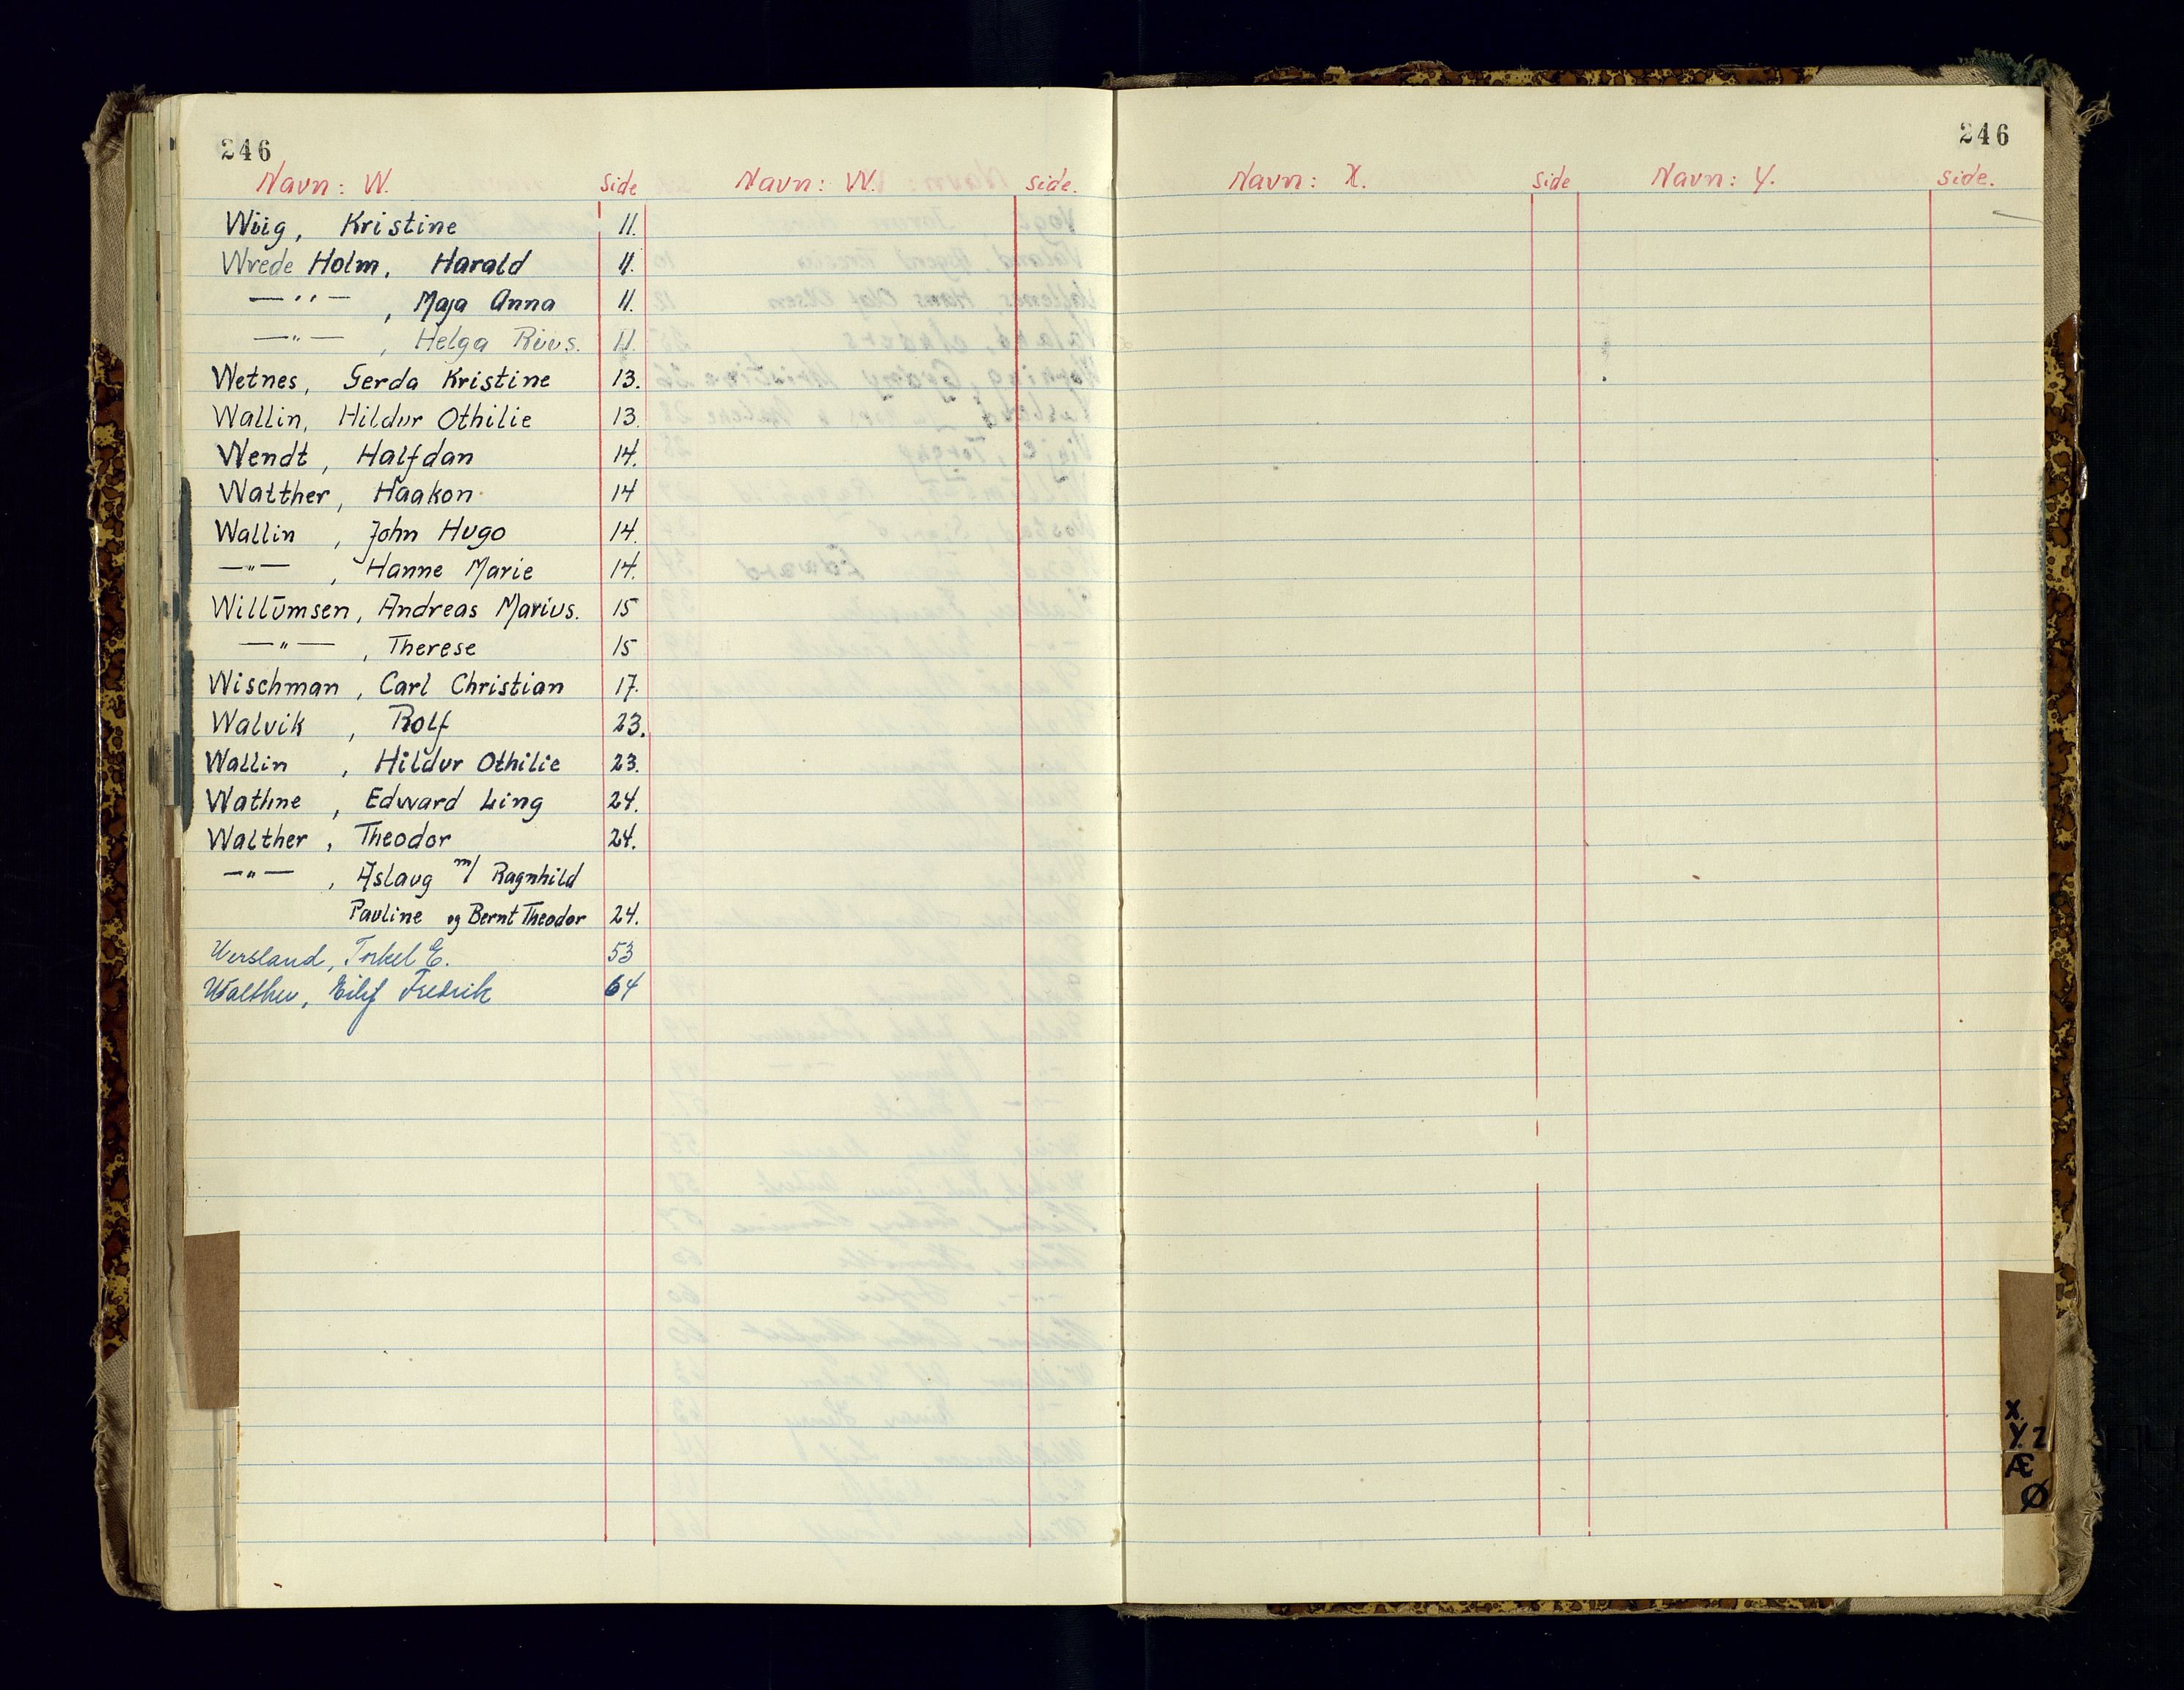 246
Navn: W. Side Navn: W. side.
Wiig, Kristine 11.
Wrede Holm, Harald 11.
—"— , Maja Anna 11.
—"— , Helga Riius. 11.
Wetnes, Gerda Kristine 13.
Wallin, Hildur Othilie 13.
Wendt, Halfdan 14.
Walther, Haakon 14
Wallin , John Hugo 14.
—"— , Hanne Marie 14.
Willumsen, Andreas Marius. 15
—"— , Therese 15
Wischman, Carl Christian 17.
Walvik , Rolf 23.
Wallin , Hildur Othilie 23.
Wathne , Edward Ling 24.
Walther , Theodor 24.
—"— , Aslaug m/ Ragnhild
Pauline og Bernt Theodor 24.
Wersland, Torkel E. 53
Walther, Eilif Fredrik 64
246
Navn: X. side Navn: Y. side.
X.
Y. Z
Æ
Ø